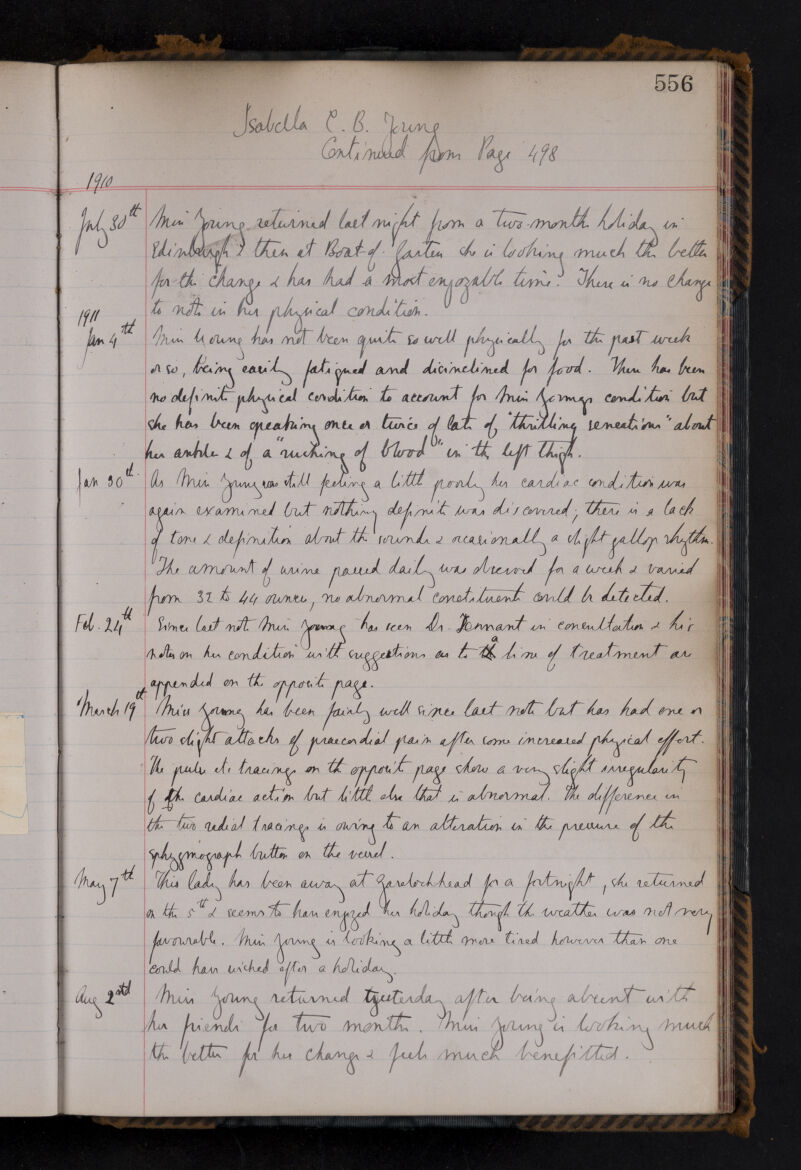 556
Isabella C. B. Young
Continued from Page 498
1910
July 30th Miss Young returned last night from a two-month holiday in
Edinburgh & then at Boat-of-Garten she is looking much the better
for the change & has had a most enjoyable time. There is no change
to note in her physical condition.
1911
Jan 4th Miss Young has not been quite so well physically for the past week
or so, being easily fatigued and disinclined for food. There has been
no definite physical condition to account for Miss Youngs condition but
she has been speaking once or twice of late of "thrilling sensations" about
her ankle & of a "rushing of blood" in the left thigh.
Jan 30th As Miss Young was still feeling a little poorly her cardiac condition was
again examined but nothing definite was discovered; there is a lack
of tone & definition about the sounds & occasionally a slight gallop rhythm.
The amount of urine passed daily was observed for a week & varied
from 32 to 44 ounces, no abnormal constituents could be detected.
Feb. 24th Since last note Miss Young has seen Dr. Tennant in consultation & his
notes on her condition with suggestions as to a line of treatment are
appended on the opposite page.
March 19th Miss Young has been fairly well since last note but has had one or
two slight attacks of praecordial pain after some increased physical effort.
The pulse etc tracings on the opposite page show a very slight irregularity
of the cardiac action but little else that is abnormal. The difference in
the two radial tracings is owing to an alteration in the pressure of the
sphygmograph button on the vessel.
May 7th This lady has been away at Garelochhead for a fortnight, she returned
on the 5th & seems to have enjoyed her holiday though the weather was not very
favourable. Miss Young is looking a little more tired however than one
could have wished after a holiday.
Aug 2nd Miss Young returned yesterday after being absent with
her friends for two months. Miss Young is looking much
the better for her change & feels much benefitted.